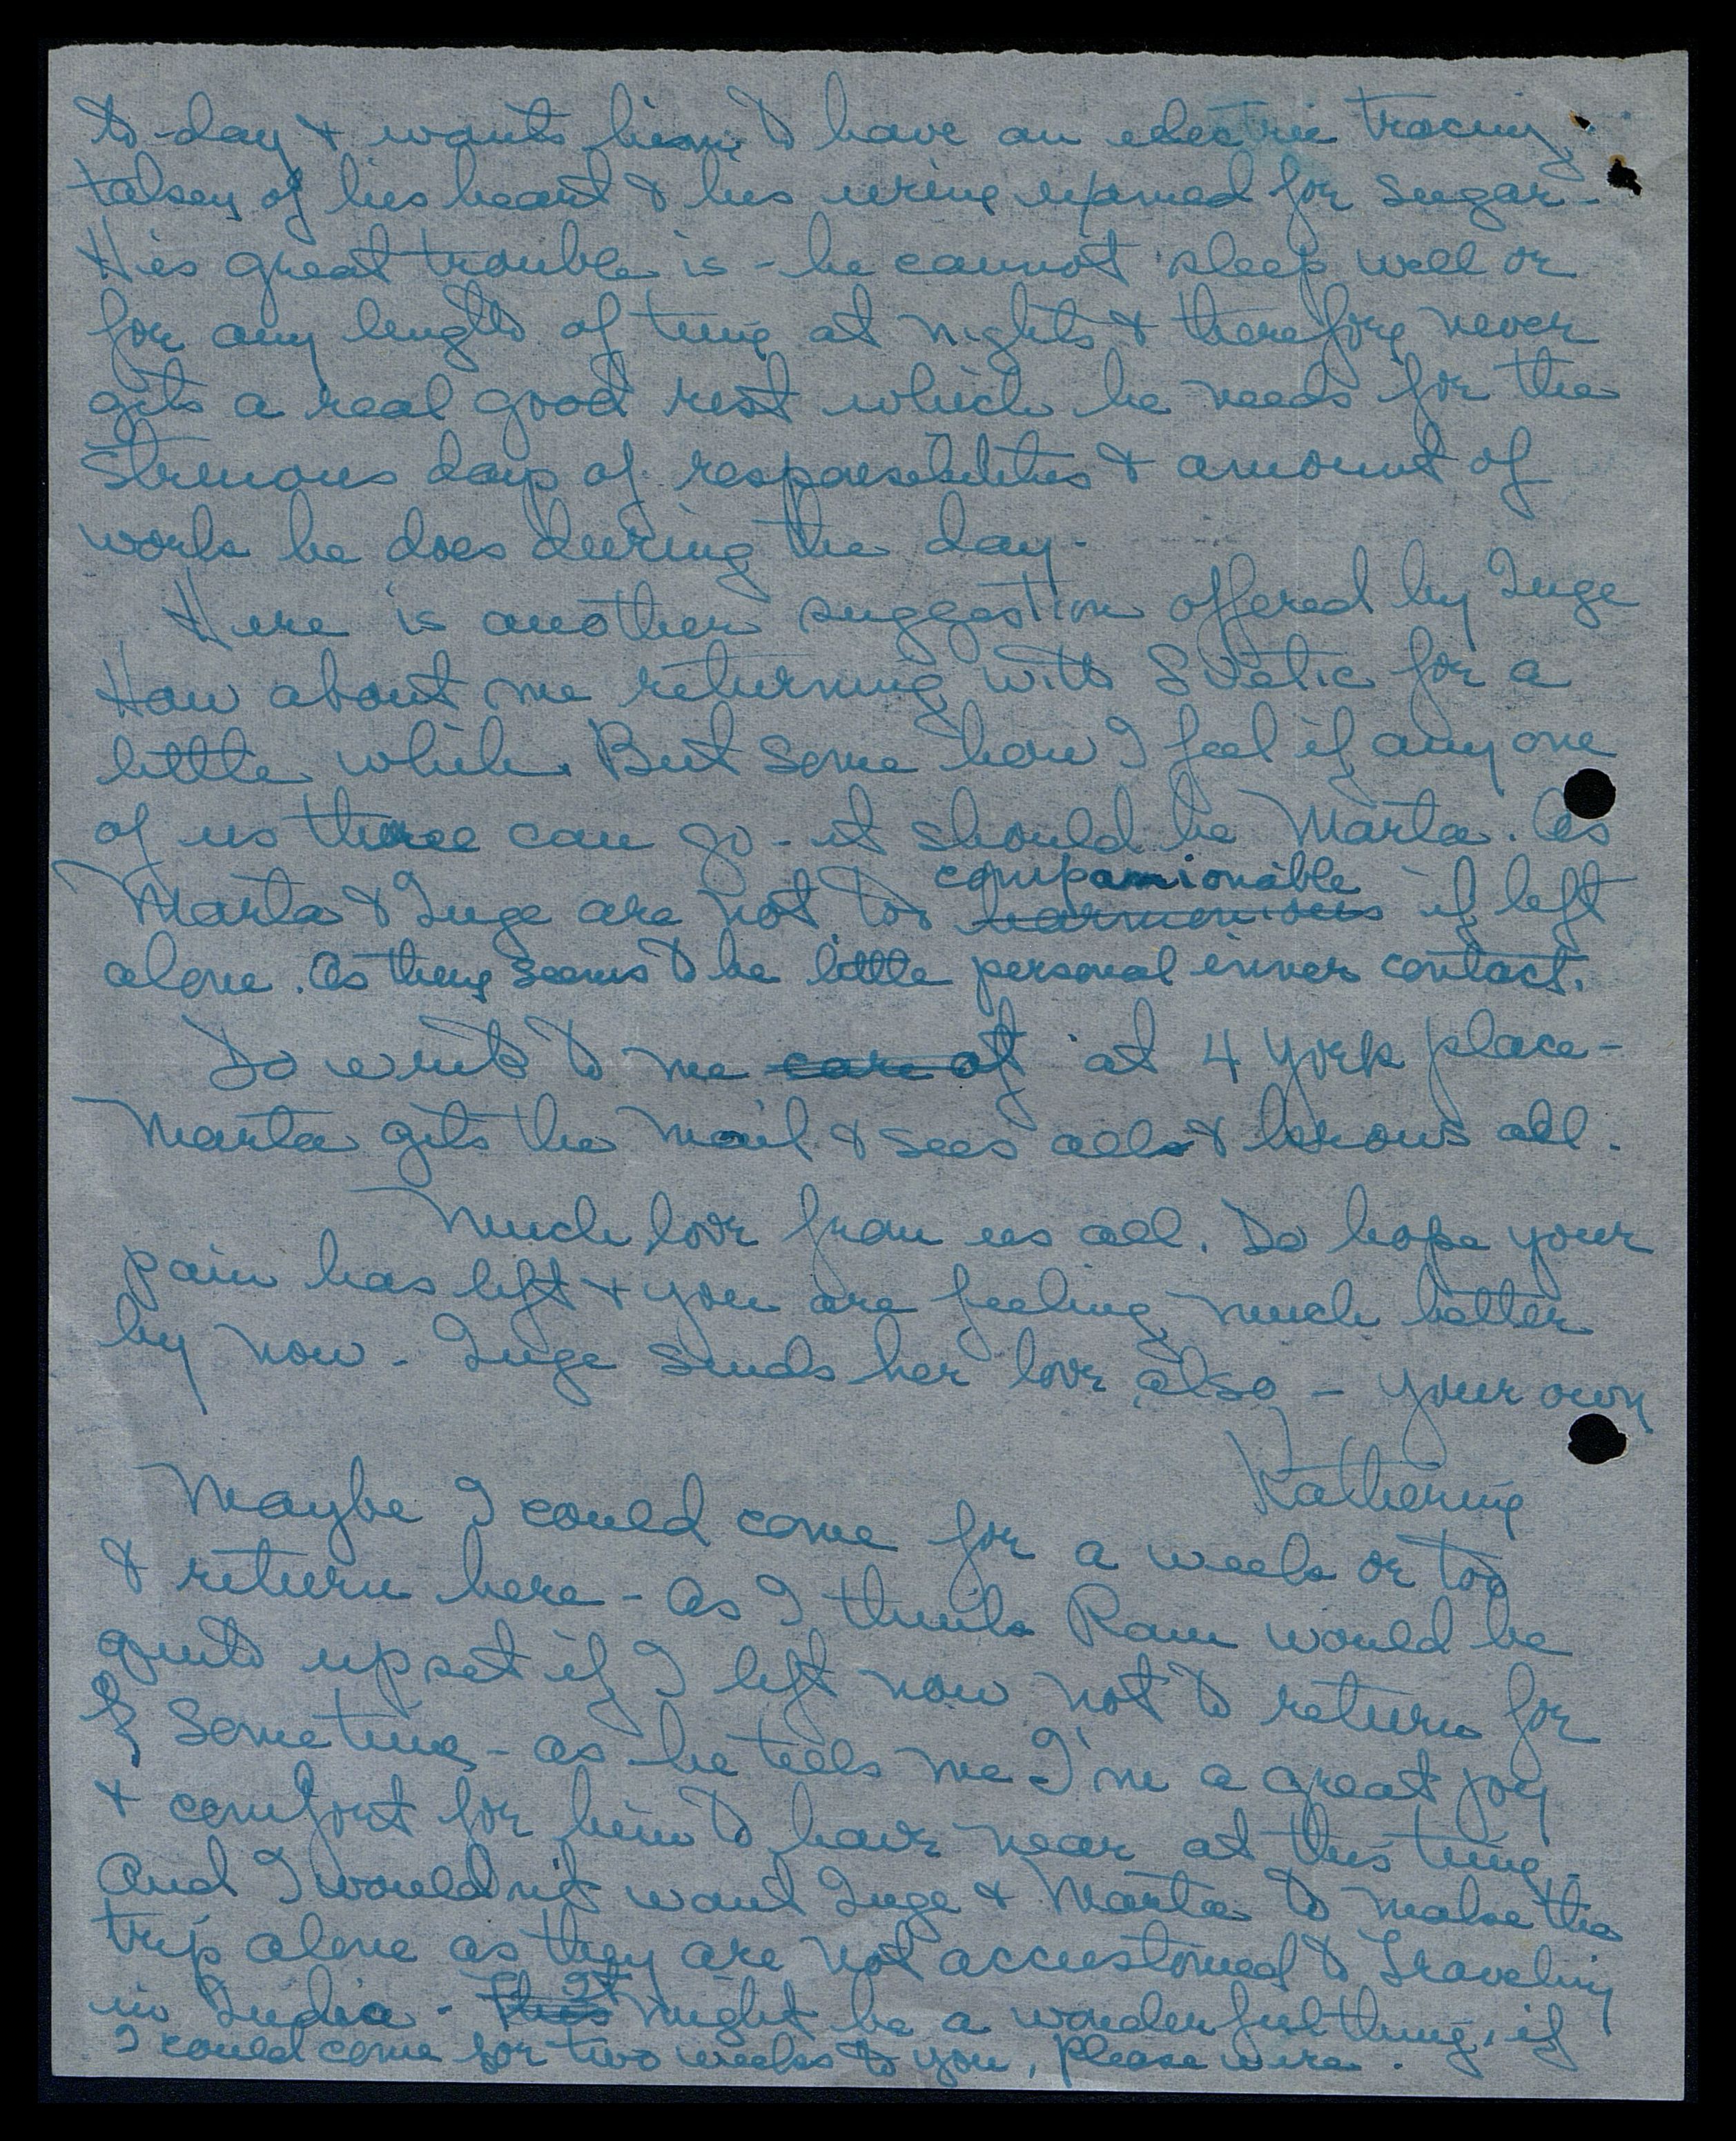 to-day & wants him to have an electric tracing
taken of his heart & his urine examed for sugar -
His great trouble is - he cannot sleep well or
for any length of time at nights & therefore never
gets a real good rest which he needs for the
strenuous days of responsibilities & amount of
work he does during the day -
Here is another suggestion offered by Inge
How about me returning with Svetic for a
little while. But some how I feel if any one
of us three can go - it should be Marta. As
companionable
Marta & Inge are not too harmonious if left
alone. As there seems to be little personal inner contact.
Do write to me care of at 4 York place -
Marta gets the mail & sees all & knows all.
Much love from us all. Do hope your
pain has left & you are feeling much better
by now - Inge sends her love also - your own
Katherine
Maybe I could come for a week or two
& return here - as I think Ram would be
quite upset if I left now not to return for
sometime - as he tells me I'm a great joy
& comfort for him to have near at this time.
And I wouldn't want Inge & Marta to make the
trip alone as they are not accustomed to traveling
in India - This It might be a wonderful thing, if
I could come for two weeks to you, please wire.